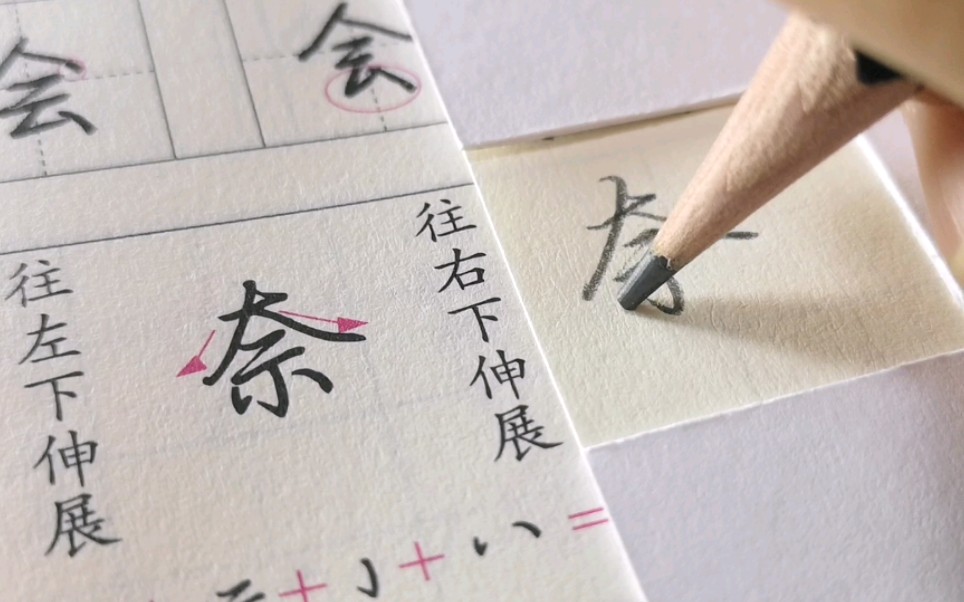 会 会
往左下伸展
奈
往右下伸展
奈
二 + 亅 + 八 =